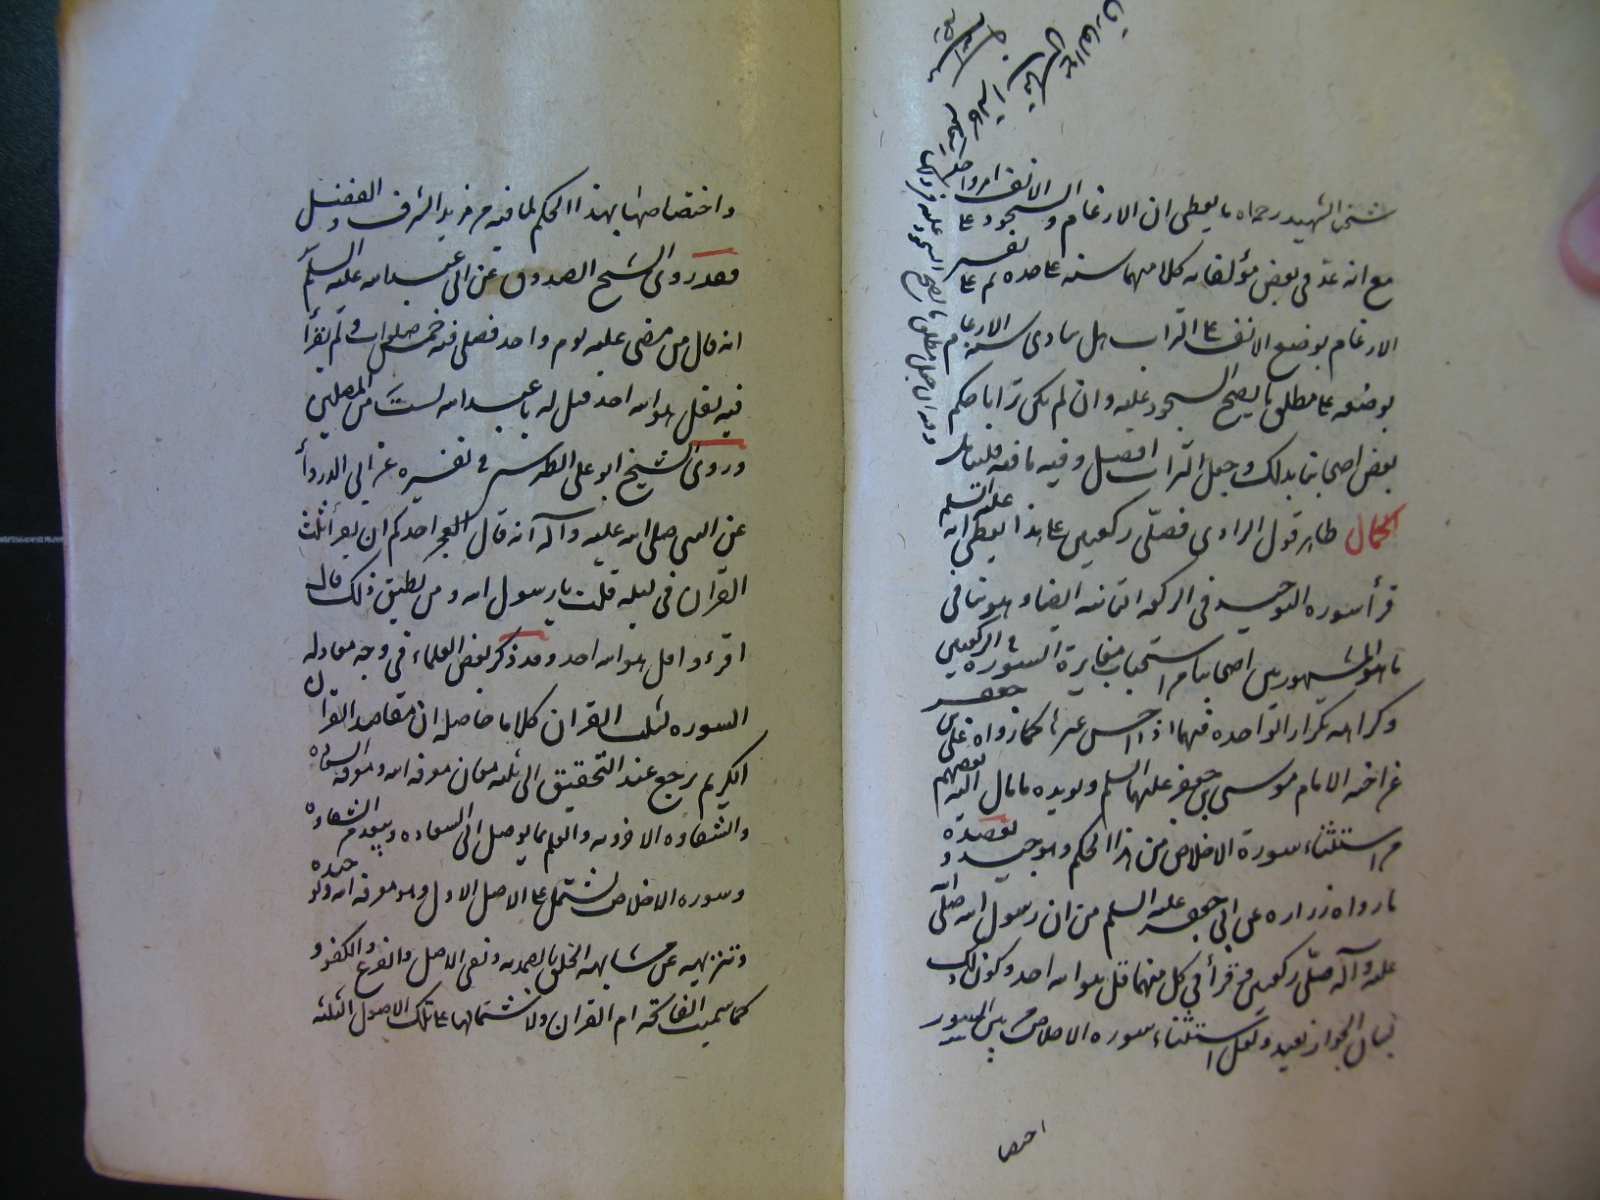 شيخنا الشهيد رحمه اله ما يعطى ان الارغام والسجود على الانف امر واحد
مع انه عد فى بعض مؤلفاته كلا منهما سنة على حده ثم على تفسير
الارغام بوضع الانف على التراب هل يتادى سنة الارغام
بوضعه على مطلق ما يصح السجود عليه وان لم يكن ترابا حكم
بعض اصحابنا بذلك وجعل التراب افضل وفيه ما فيه فليتامل
اكمال ظاهر قول الراوى فصلى ركعتين على هذا يعطى انه عليه السلم
قرأ سورة التوحيد فى الركعة الثانية ايضا وهو ينافى
ما هو المشهور بين اصحابنا من استحباب مغايرة السورة فى الركعتين
وكراهة تكرار الواحدة فيهما اذا احسن غيرها كما رواه على بن جعفر
عن اخيه الامام موسى بن جعفر عليهما السلم ويؤيده ما مال اليه بعضهم
من استثناء سورة الاخلاص من هذا الحكم وهو جيد ويعضده
ما رواه زراره عن ابى جعفر عليه السلم من ان رسول اله صلى اله
عليه وآله صلى ركعتين وقرأ فى كل منهما قل هو اله احد وكون ذلك
لبيان الجواز بعيد ولعل استثناء سورة الاخلاص من بين السور
اختصا
وانه ان جعل مطلق ما يصح السجود عليه
واختصاصها بهذا الحكم لما فيه من مزيد الشرف والفضل
فقد روى الشيخ الصدوق عن ابى عبد اله عليه السلم
انه قال من مضى عليه يوم واحد فصلى فيه خمس صلوات ولم يقرأ
فيه بقل هو اله احد قيل له يا عبد اله لست من المصلين
وروى الشيخ ابو على الطبرسى فى تفسيره عن ابى الدرداء
عن النبى صلى اله عليه وآله انه قال ايعجز احدكم ان يقرأ ثلث
القرآن فى ليلة قلت يا رسول اله ومن يطيق ذلك قال
اقرءوا قل هو اله احد وقد ذكر بعض العلماء فى وجه معادلة
السورة لثلث القرآن كلاما حاصله ان مقاصد القرآن
الكريم يرجع عند التحقيق الى ثلثة معان معرفة اله ومعرفة السعادة
والشقاوة الاخروية والعلم بما يوصل الى السعادة ويبعد من الشقاوة
وسورة الاخلاص تشتمل على الاصل الاول وهو معرفة اله وتوحيده
وتنزيهه عن مشابهة الخلق بالصمدية ونفى الاصل والفرع والكفو و
كما سميت الفاتحة ام القرآن ولاشتمالها على تلك الاصول الثلثة